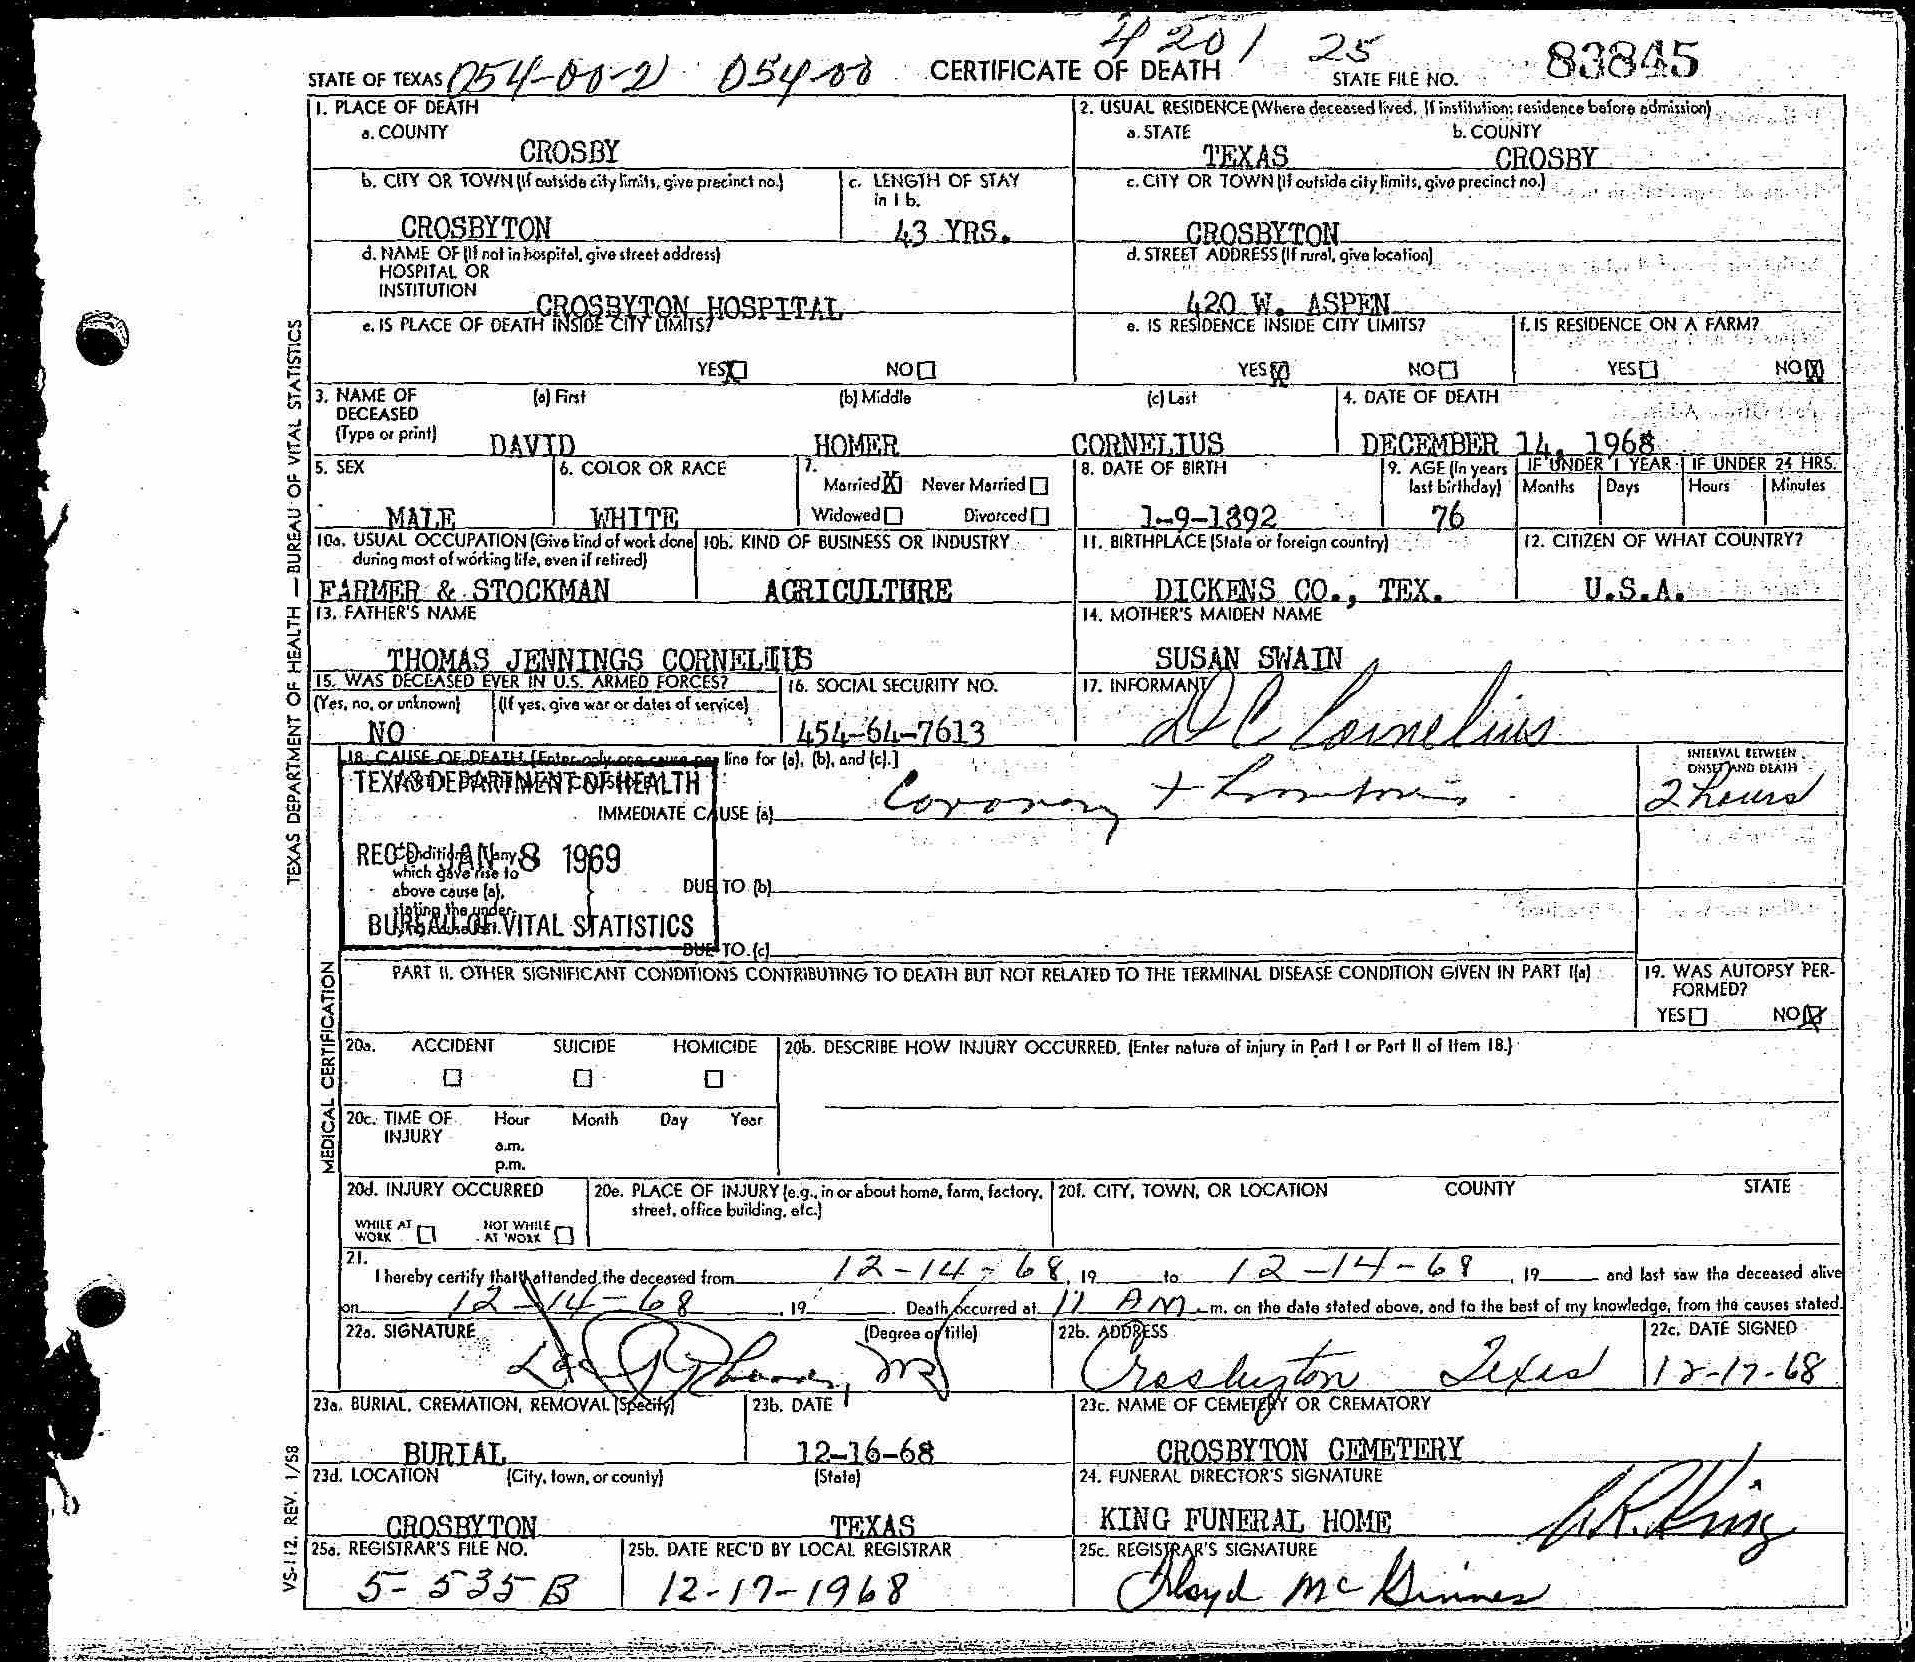 4201 25
STATE OF TEXAS 054-00-2 054-00 CERTIFICATE OF DEATH STATE FILE NO. 83845
1. PLACE OF DEATH
a. COUNTY
CROSBY
2. USUAL RESIDENCE (Where deceased lived. If institution: residence before admission)
a. STATE b. COUNTY
TEXAS CROSBY
b. CITY OR TOWN (If outside city limits, give precinct no.)
CROSBYTON
c. LENGTH OF STAY
in 1 b.
43 YRS.
c. CITY OR TOWN (If outside city limits, give precinct no.)
CROSBYTON
d. NAME OF (If not in hospital, give street address)
HOSPITAL OR
INSTITUTION
CROSBYTON HOSPITAL
d. STREET ADDRESS (If rural, give location)
420 W. ASPEN
e. IS PLACE OF DEATH INSIDE CITY LIMITS?
YES X NO
e. IS RESIDENCE INSIDE CITY LIMITS?
YES X NO
f. IS RESIDENCE ON A FARM?
YES NO X
3. NAME OF
DECEASED
(Type or print)
(a) First (b) Middle (c) Last
DAVID HOMER CORNELIUS
4. DATE OF DEATH
DECEMBER 14, 1968
5. SEX
MALE
6. COLOR OR RACE
WHITE
7.
Married X Never Married
Widowed Divorced
8. DATE OF BIRTH
1-9-1892
9. AGE (In years
last birthday)
76
IF UNDER 1 YEAR IF UNDER 24 HRS.
Months Days Hours Minutes
10a. USUAL OCCUPATION (Give kind of work done
during most of working life, even if retired)
FARMER & STOCKMAN
10b. KIND OF BUSINESS OR INDUSTRY
AGRICULTURE
11. BIRTHPLACE (State or foreign country)
DICKENS CO., TEX.
12. CITIZEN OF WHAT COUNTRY?
U.S.A.
13. FATHER'S NAME
THOMAS JENNINGS CORNELIUS
14. MOTHER'S MAIDEN NAME
SUSAN SWAIN
15. WAS DECEASED EVER IN U.S. ARMED FORCES?
(Yes, no, or unknown) (If yes, give war or dates of service)
NO
16. SOCIAL SECURITY NO.
454-64-7613
17. INFORMANT
D C Cornelius
18. CAUSE OF DEATH [Enter only one cause per line for (a), (b), and (c).]
TEXAS DEPARTMENT OF HEALTH
REC'D JAN 8 1969
BUREAU OF VITAL STATISTICS
IMMEDIATE CAUSE (a) Coronary Thrombosis
INTERVAL BETWEEN
ONSET AND DEATH
2 hours
Conditions, if any
which gave rise to
above cause (a),
stating the under-
DUE TO (b)
DUE TO (c)
PART II. OTHER SIGNIFICANT CONDITIONS CONTRIBUTING TO DEATH BUT NOT RELATED TO THE TERMINAL DISEASE CONDITION GIVEN IN PART I(a)
19. WAS AUTOPSY PER-
FORMED?
YES NO X
20a. ACCIDENT SUICIDE HOMICIDE
20b. DESCRIBE HOW INJURY OCCURRED. (Enter nature of injury in Part I or Part II of Item 18.)
20c. TIME OF
INJURY
Hour Month Day Year
a.m.
p.m.
20d. INJURY OCCURRED
WHILE AT
WORK
NOT WHILE
AT WORK
20e. PLACE OF INJURY (e.g., in or about home, farm, factory,
street, office building, etc.)
20f. CITY, TOWN, OR LOCATION COUNTY STATE
21.
I hereby certify that I attended the deceased from 12-14-68, 19 to 12-14-68, 19 and last saw the deceased alive
on 12-14-68, 19 . Death occurred at 11 AM m. on the date stated above, and to the best of my knowledge, from the causes stated.
22a. SIGNATURE (Degree or title)
MD
22b. ADDRESS
Crosbyton Texas
22c. DATE SIGNED
12-17-68
23a. BURIAL, CREMATION, REMOVAL (Specify)
BURIAL
23b. DATE
12-16-68
23c. NAME OF CEMETERY OR CREMATORY
CROSBYTON CEMETERY
23d. LOCATION (City, town, or county) (State)
CROSBYTON TEXAS
24. FUNERAL DIRECTOR'S SIGNATURE
KING FUNERAL HOME R. King
25a. REGISTRAR'S FILE NO.
5-535 B
25b. DATE REC'D BY LOCAL REGISTRAR
12-17-1968
25c. REGISTRAR'S SIGNATURE
Floyd McGinnes
TEXAS DEPARTMENT OF HEALTH — BUREAU OF VITAL STATISTICS
MEDICAL CERTIFICATION
VS-112. REV. 1/58